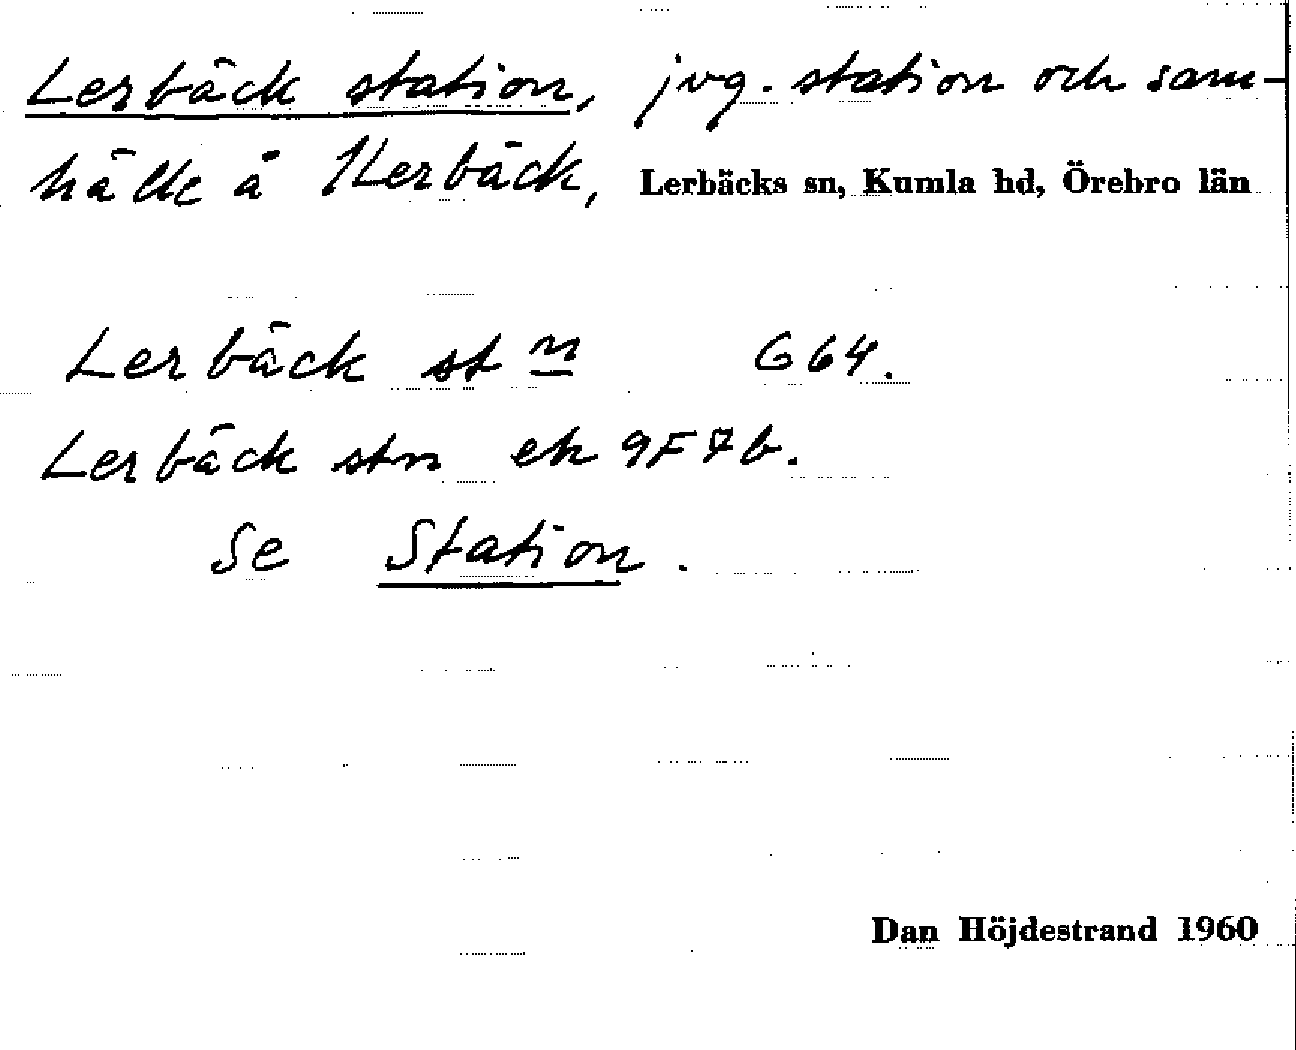 Lerbäck station, jvg. station och sam-
hälle å 1Lerbäck, Lerbäcks sn, Kumla hd, Örebro län
Lerbäck stn G64.
Lerbäck stn ek 9F7b.
Se Station.
Dan Höjdestrand 1960